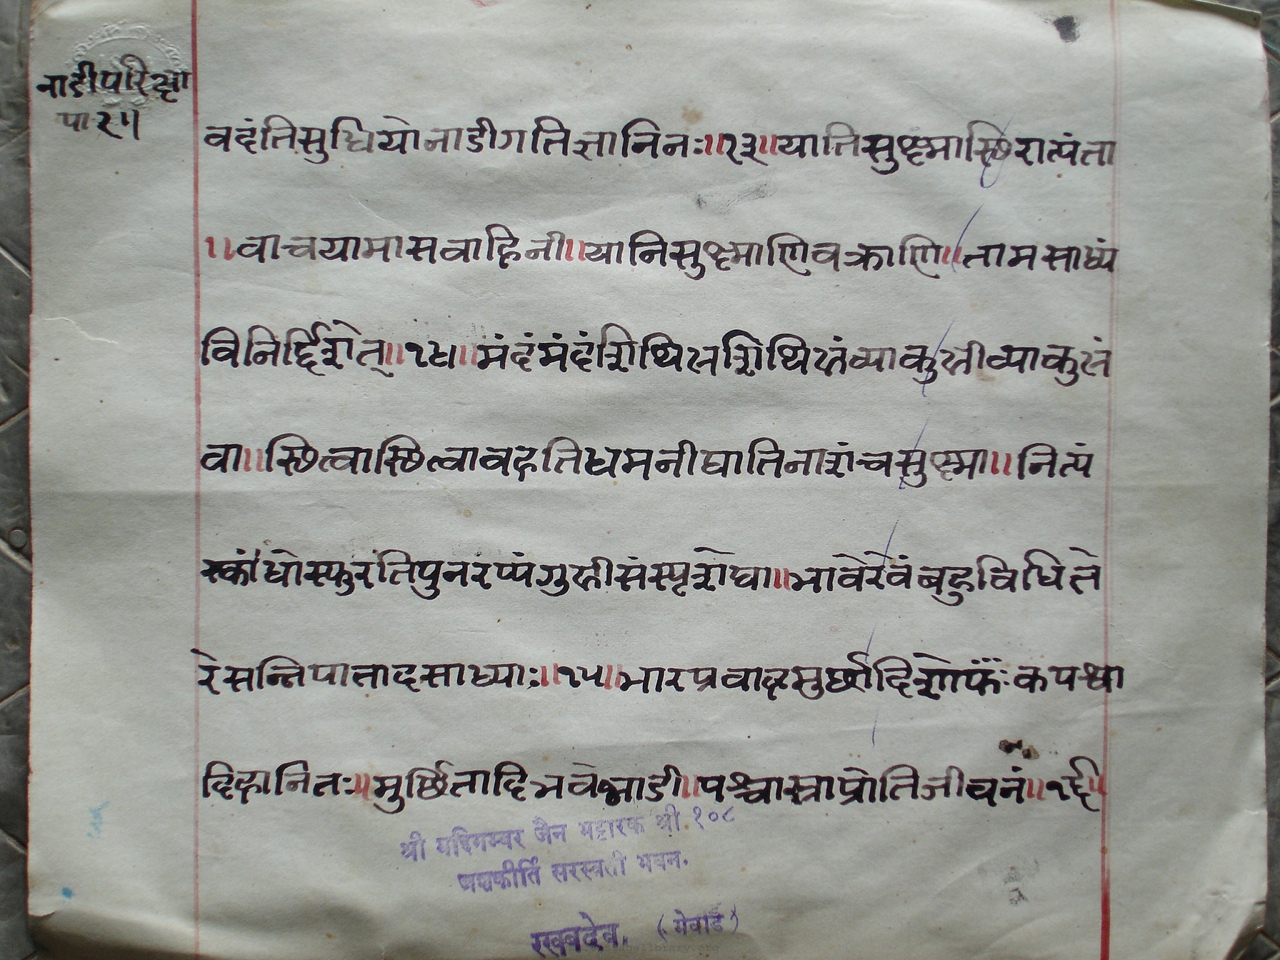 नाडीपरिक्षा
पा २५
वदंतिसुधियोनाडीगतिज्ञानिनः॥१३॥यातिसुक्ष्मास्छिरात्यंता
॥वाचयामासवाहिनी॥यानिसुक्ष्माणिवक्राणि॥तामसाध्यं
विनिर्द्दिशेत्॥१४॥मंदंमंदंशिथिलशिथिलंव्याकुलीव्याकुलं
वा॥स्छित्वास्छित्वावहतिधमनीयातिनाशंचसुक्ष्मा॥नित्यं
स्कांधोस्फुरंतिपुनरप्यंगुलीसंस्पृशेघा॥भावेरेवंबहुविधिते
रेसन्निपातादसाध्याः॥१५॥भारप्रवाहमुर्छादिशोफंःकपश्चा
दिहानितः॥मुर्छितादिभवेन्नाडी॥पश्चास्नाप्रोतिजीवनं॥१६॥
श्री मद्दिगम्बर जैन भट्टारक श्री १०८
यशकीर्ति सरस्वती भवन.
रखबदेव. (मेवाड)